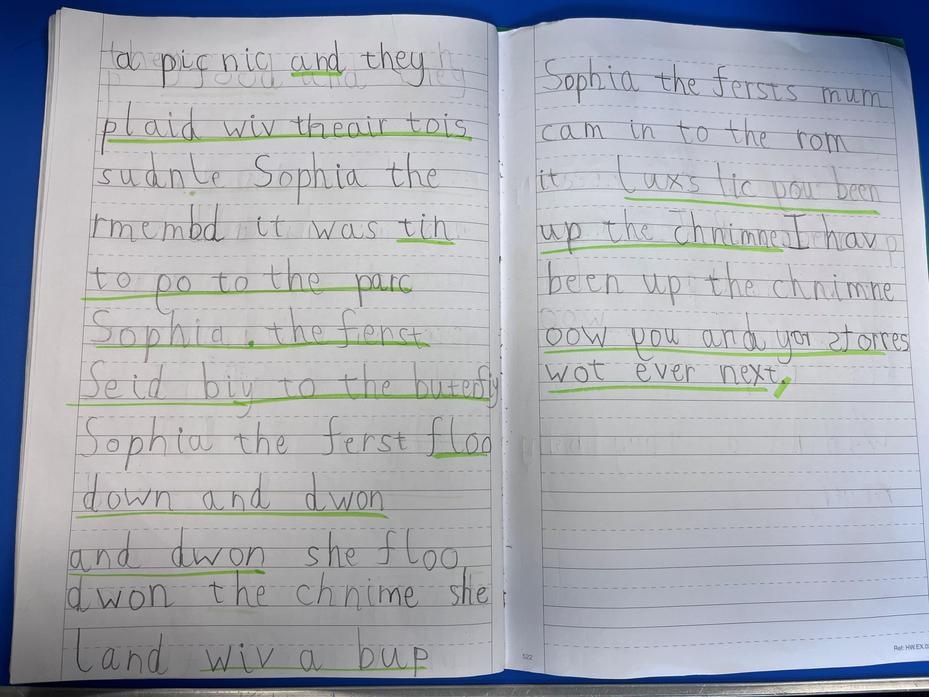 a picnic and they
plaid wiv theair tois
sudnle Sophia the
rmembd it was tih
to go to the parc
Sophia . the ferst
Seid biy to the buterfly
Sophia the ferst floo
down and dwon
and dwon she floo
dwon the chnime she
land wiv a bup
Sophia the fersts mum
cam in to the rom
it luxs lic you been
up the chnimne I hav
been up the chnimne
oow you and yor storres
wot ever next.
522
Ref: HW.EX.0